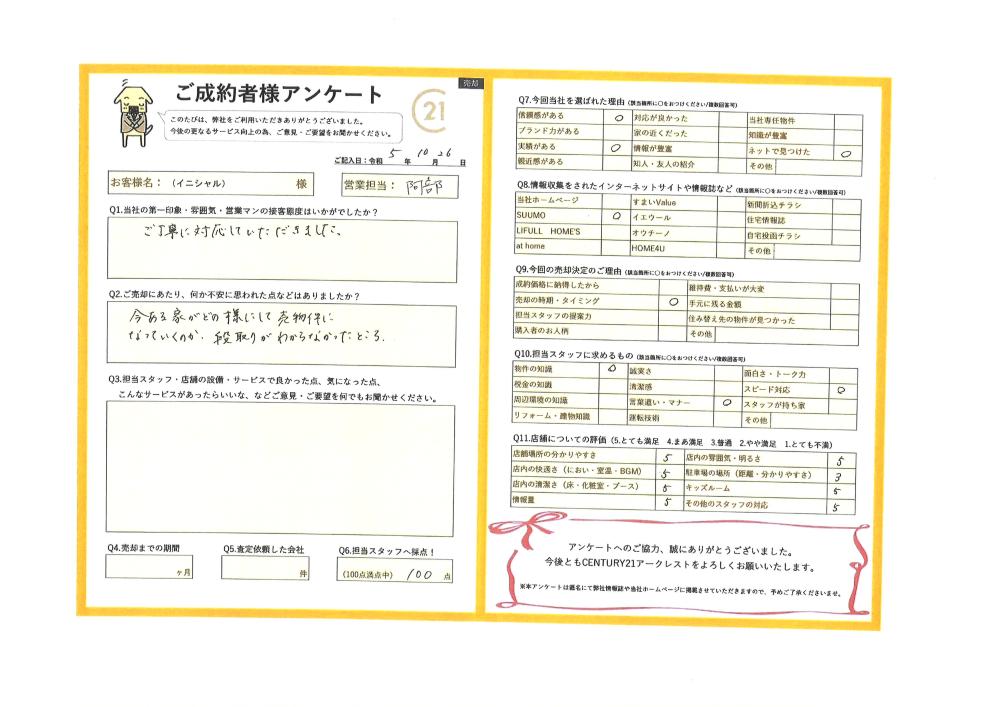 売却
ご成約者様アンケート
21
このたびは、弊社をご利用いただきありがとうございました。
今後の更なるサービス向上の為、ご意見・ご要望をお聞かせください。
ご記入日：令和 5 年 10 月 26 日
お客様名：（イニシャル） 様
営業担当： 阿部
Q1.当社の第一印象・雰囲気・営業マンの接客態度はいかがでしたか？
ご丁寧に対応していただきました。
Q2.ご売却にあたり、何か不安に思われた点などはありましたか？
今ある家がどの様にして売物件に
なっていくのか、段取りがわからなかったところ．
Q3.担当スタッフ・店舗の設備・サービスで良かった点、気になった点、
こんなサービスがあったらいいな、などご意見・ご要望を何でもお聞かせください。
Q4.売却までの期間
ヶ月
Q5.査定依頼した会社
件
Q6.担当スタッフへ採点！
（100点満点中） 100 点
Q7.今回当社を選ばれた理由（該当箇所に○をおつけください/複数回答可）
信頼感がある ○ 対応が良かった 当社専任物件
ブランド力がある 家の近くだった 知識が豊富
実績がある ○ 情報が豊富 ネットで見つけた ○
親近感がある 知人・友人の紹介 その他
Q8.情報収集をされたインターネットサイトや情報誌など（該当箇所に○をおつけください/複数回答可）
当社ホームページ すまいValue 新聞折込チラシ
SUUMO ○ イエウール 住宅情報誌
LIFULL HOME'S オウチーノ 自宅投函チラシ
at home HOME4U その他
Q9.今回の売却決定のご理由（該当箇所に○をおつけください/複数回答可）
成約価格に納得したから 維持費・支払いが大変
売却の時期・タイミング ○ 手元に残る金額
担当スタッフの提案力 住み替え先の物件が見つかった
購入者のお人柄 その他
Q10.担当スタッフに求めるもの（該当箇所に○をおつけください/複数回答可）
物件の知識 ○ 誠実さ 面白さ・トーク力
税金の知識 清潔感 スピード対応 ○
周辺環境の知識 言葉遣い・マナー ○ スタッフが持ち家
リフォーム・建物知識 運転技術 その他
Q11.店舗についての評価（5.とても満足 4.まあ満足 3.普通 2.やや満足 1.とても不満）
店舗場所の分かりやすさ 5 店内の雰囲気・明るさ 5
店内の快適さ（におい・室温・BGM） 5 駐車場の場所（距離・分かりやすさ） 3
店内の清潔さ（床・化粧室・ブース） 5 キッズルーム 5
情報量 5 その他のスタッフの対応 5
アンケートへのご協力、誠にありがとうございました。
今後ともCENTURY21アークレストをよろしくお願いいたします。
※本アンケートは匿名にて弊社情報誌や当社ホームページに掲載させていただきますので、予めご了承くださいませ。